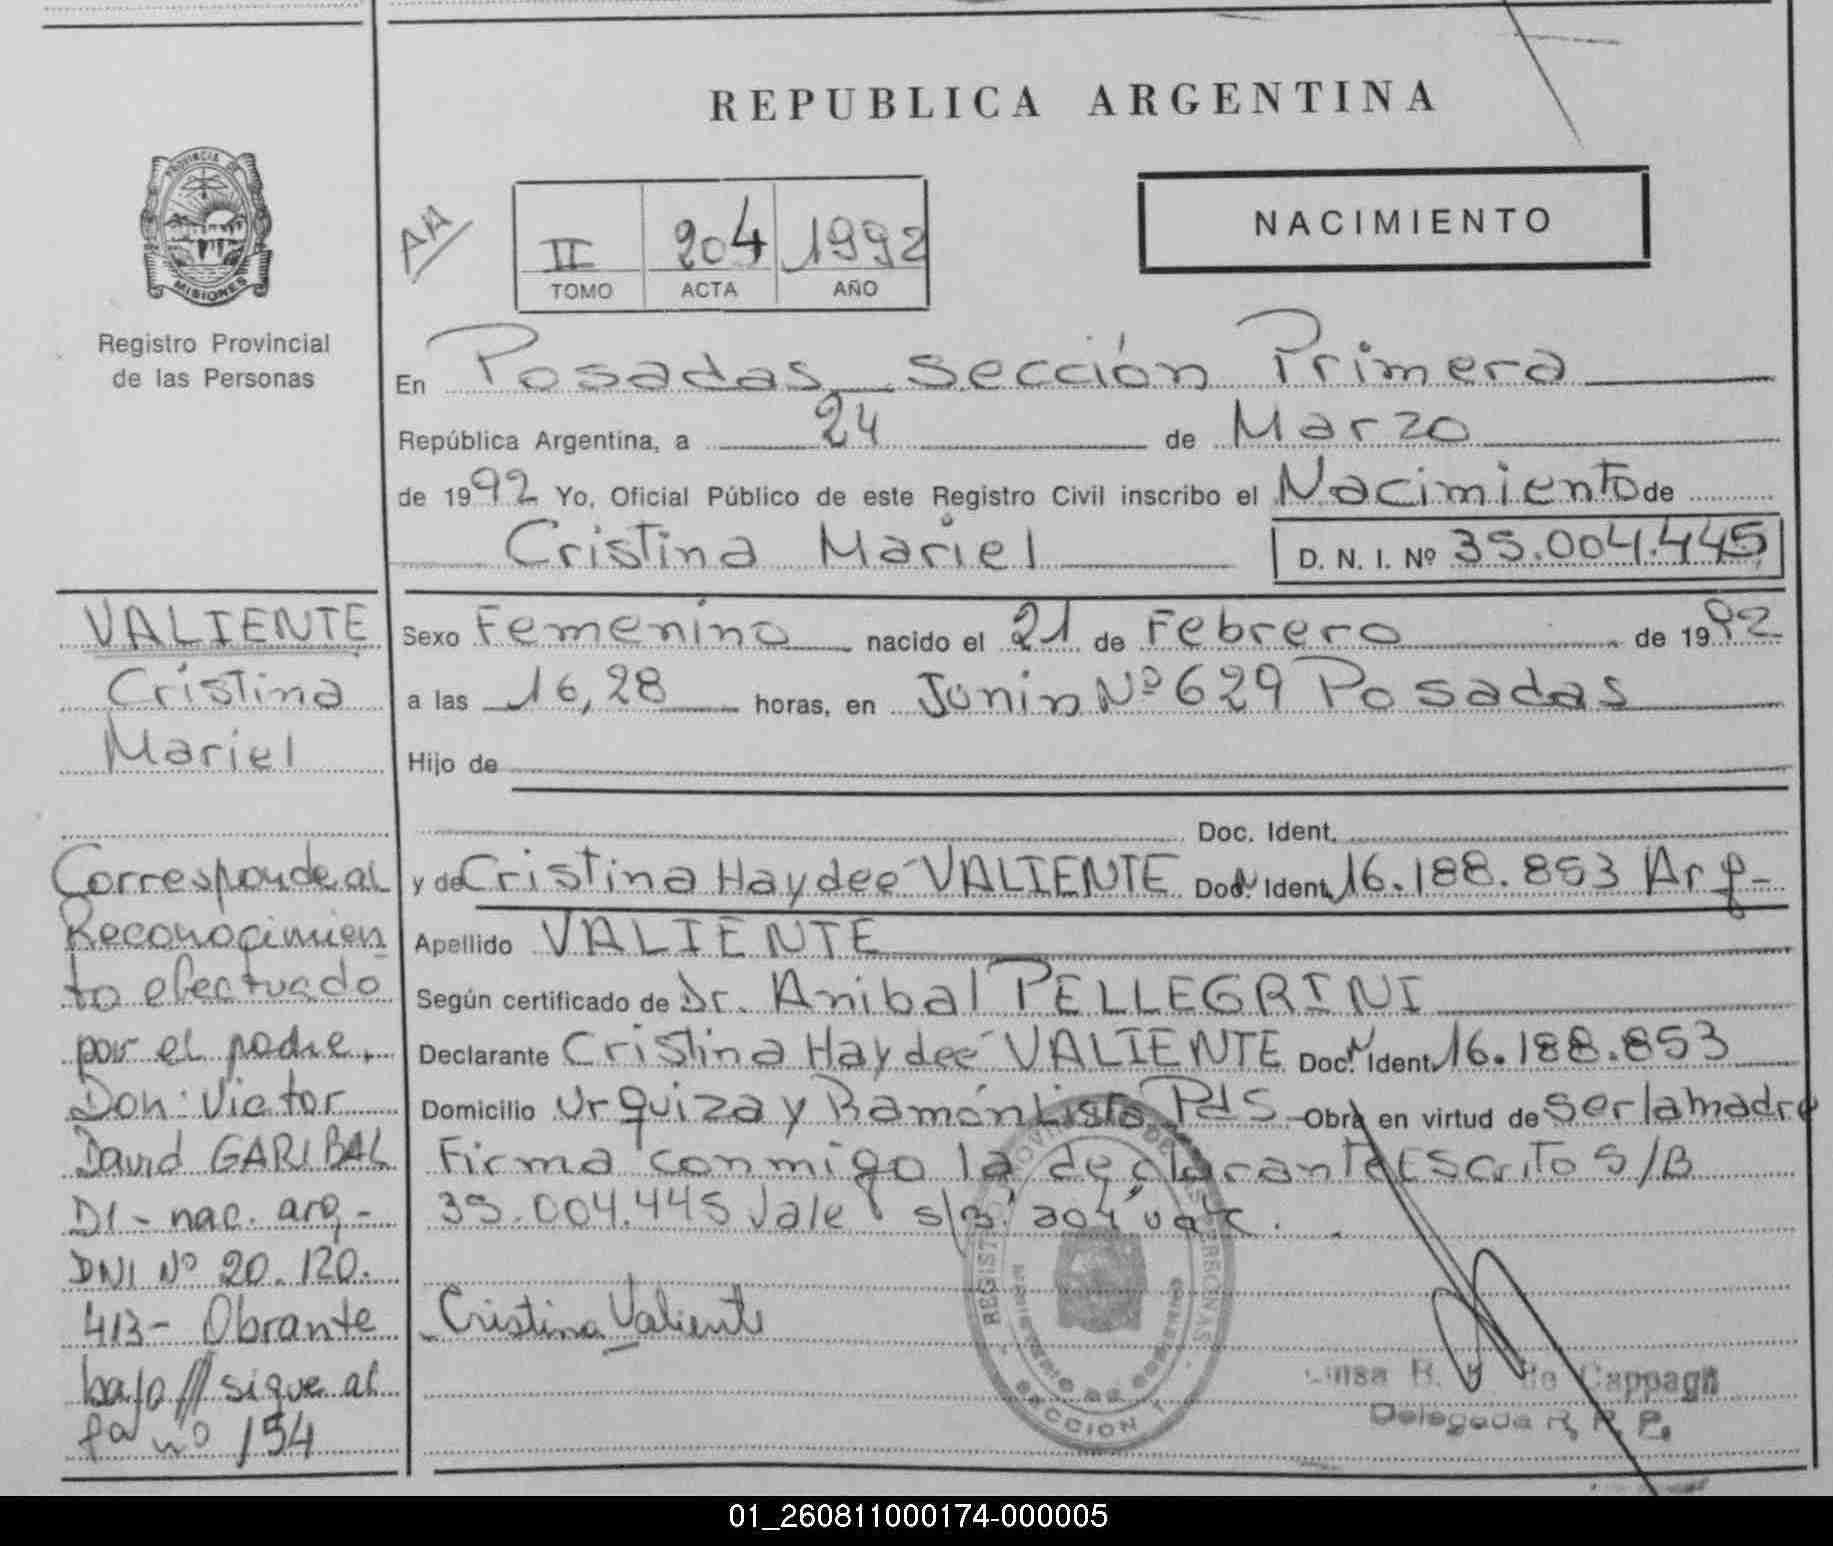 REPUBLICA ARGENTINA
PROVINCIA DE
MISIONES
Registro Provincial
de las Personas
AA
II 204 1992
TOMO ACTA AÑO
NACIMIENTO
En Posadas Sección Primera
República Argentina, a 24 de Marzo
de 1992 Yo, Oficial Público de este Registro Civil inscribo el Nacimiento de
Cristina Mariel D. N. I. Nº 35.004.445
Sexo Femenino nacido el 21 de Febrero de 1992
a las 16,28 horas, en Junin Nº 629 Posadas
Hijo de
Doc. Ident.
y de Cristina Haydeé VALIENTE Doc. Ident. 16.188.853 Arg-
Apellido VALIENTE
Según certificado de Dr. Anibal PELLEGRINI
Declarante Cristina Haydeé VALIENTE Doc. Ident. 16.188.853
Domicilio Urquiza y Ramón Lista Pds Obra en virtud de ser la madre
Firma conmigo la declarante Escrito S/B
35.004.445 Vale s/B. 204 vale.
Cristina Valiente
de Cappagli
Delegada R. P. P.
SECCION 1
VALIENTE
Cristina
Mariel
Corresponde al
Reconocimien
to efectuado
por el padre,
Don: Victor
David GARIBAL
DI - nac. arg.-
DNI Nº 20.120.
413- Obrante
bajo /// sigue al
fº nº 154
01_260811000174-000005